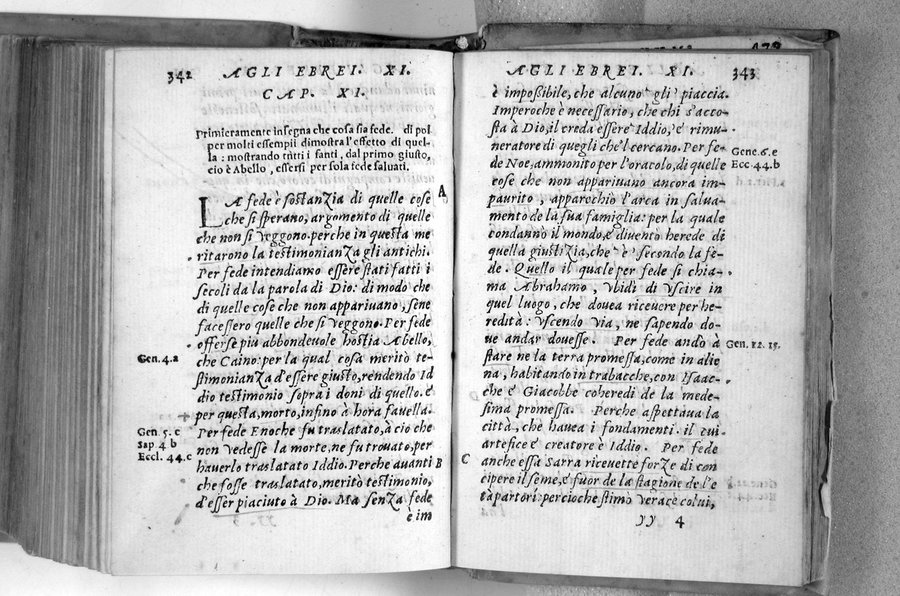 342 AGLI EBREI. XI.
CAP. XI.
Primieramente insegna che cosa sia fede. di poi
per molti essempii dimostra l'effetto di quel-
la: mostrando tutti i santi, dal primo giusto,
cio è Abello, essersi per sola fede saluati.
A
LA fede è sostanzia di quelle cose
che si sperano, argomento di quelle
che non si veggono. perche in questa me
ritarono la testimonianza gli antichi.
Per fede intendiamo essere stati fatti i
secoli da la parola di Dio: di modo che
di quelle cose che non apparivano, sene
facessero quelle che si veggono. Per fede
offerse più abbondeuole hostia Abello,
Gen. 4. a
che Caino: per la qual cosa meritò te-
stimonianza d'essere giusto, rendendo Id
dio testimonio sopra i doni di quello. e
per questa, morto, infino à hora fauella.
Gen 5. c
Per fede Enoche fu traslatato, à cio che
Sap 4 b
non vedesse la morte, ne fu trouato, per
Eccl. 44. c
hauerlo traslatato Iddio. Perche auanti
B
che fosse traslatato, meritò testimonio,
d'esser piaciuto à Dio. Ma senza fede
è im
AGLI EBREI. XI. 343
è impoßibile, che alcuno gli piaccia.
Imperoche è necessario, che chi s'acco-
sta à Dio, il creda essere Iddio, e rimu-
neratore di quegli che'l cercano. Per fe-
Gene. 6. e
de Noe, ammonito per l'oracolo, di quelle
Ecc. 44. b
cose che non apparivano ancora im-
paurito, apparechio l'arca in salua-
mento de la sua famiglia: per la quale
condannò il mondo, e diventò herede di
quella giustizia, che è secondo la fe-
de. Quello il quale per fede si chia-
ma Abrahamo, vbidì di vscire in
quel luogo, che douea riceuere per he-
redità: vscendo via, ne sapendo do-
ue andar douesse. Per fede andò à
Gen. 12. 15.
stare ne la terra promessa, come in alie
na, habitando in trabacche, con Isaac-
che e Giacobbe coheredi de la mede-
sima promessa. Perche aspettaua la
città, che hauea i fondamenti. il cui
artefice e creatore è Iddio. Per fede
C
anche essa Sarra riceuette forze di con
cipere il seme, e fuor de la stagione de l'e
tà partorì: percioche stimò verace colui,
yy 4